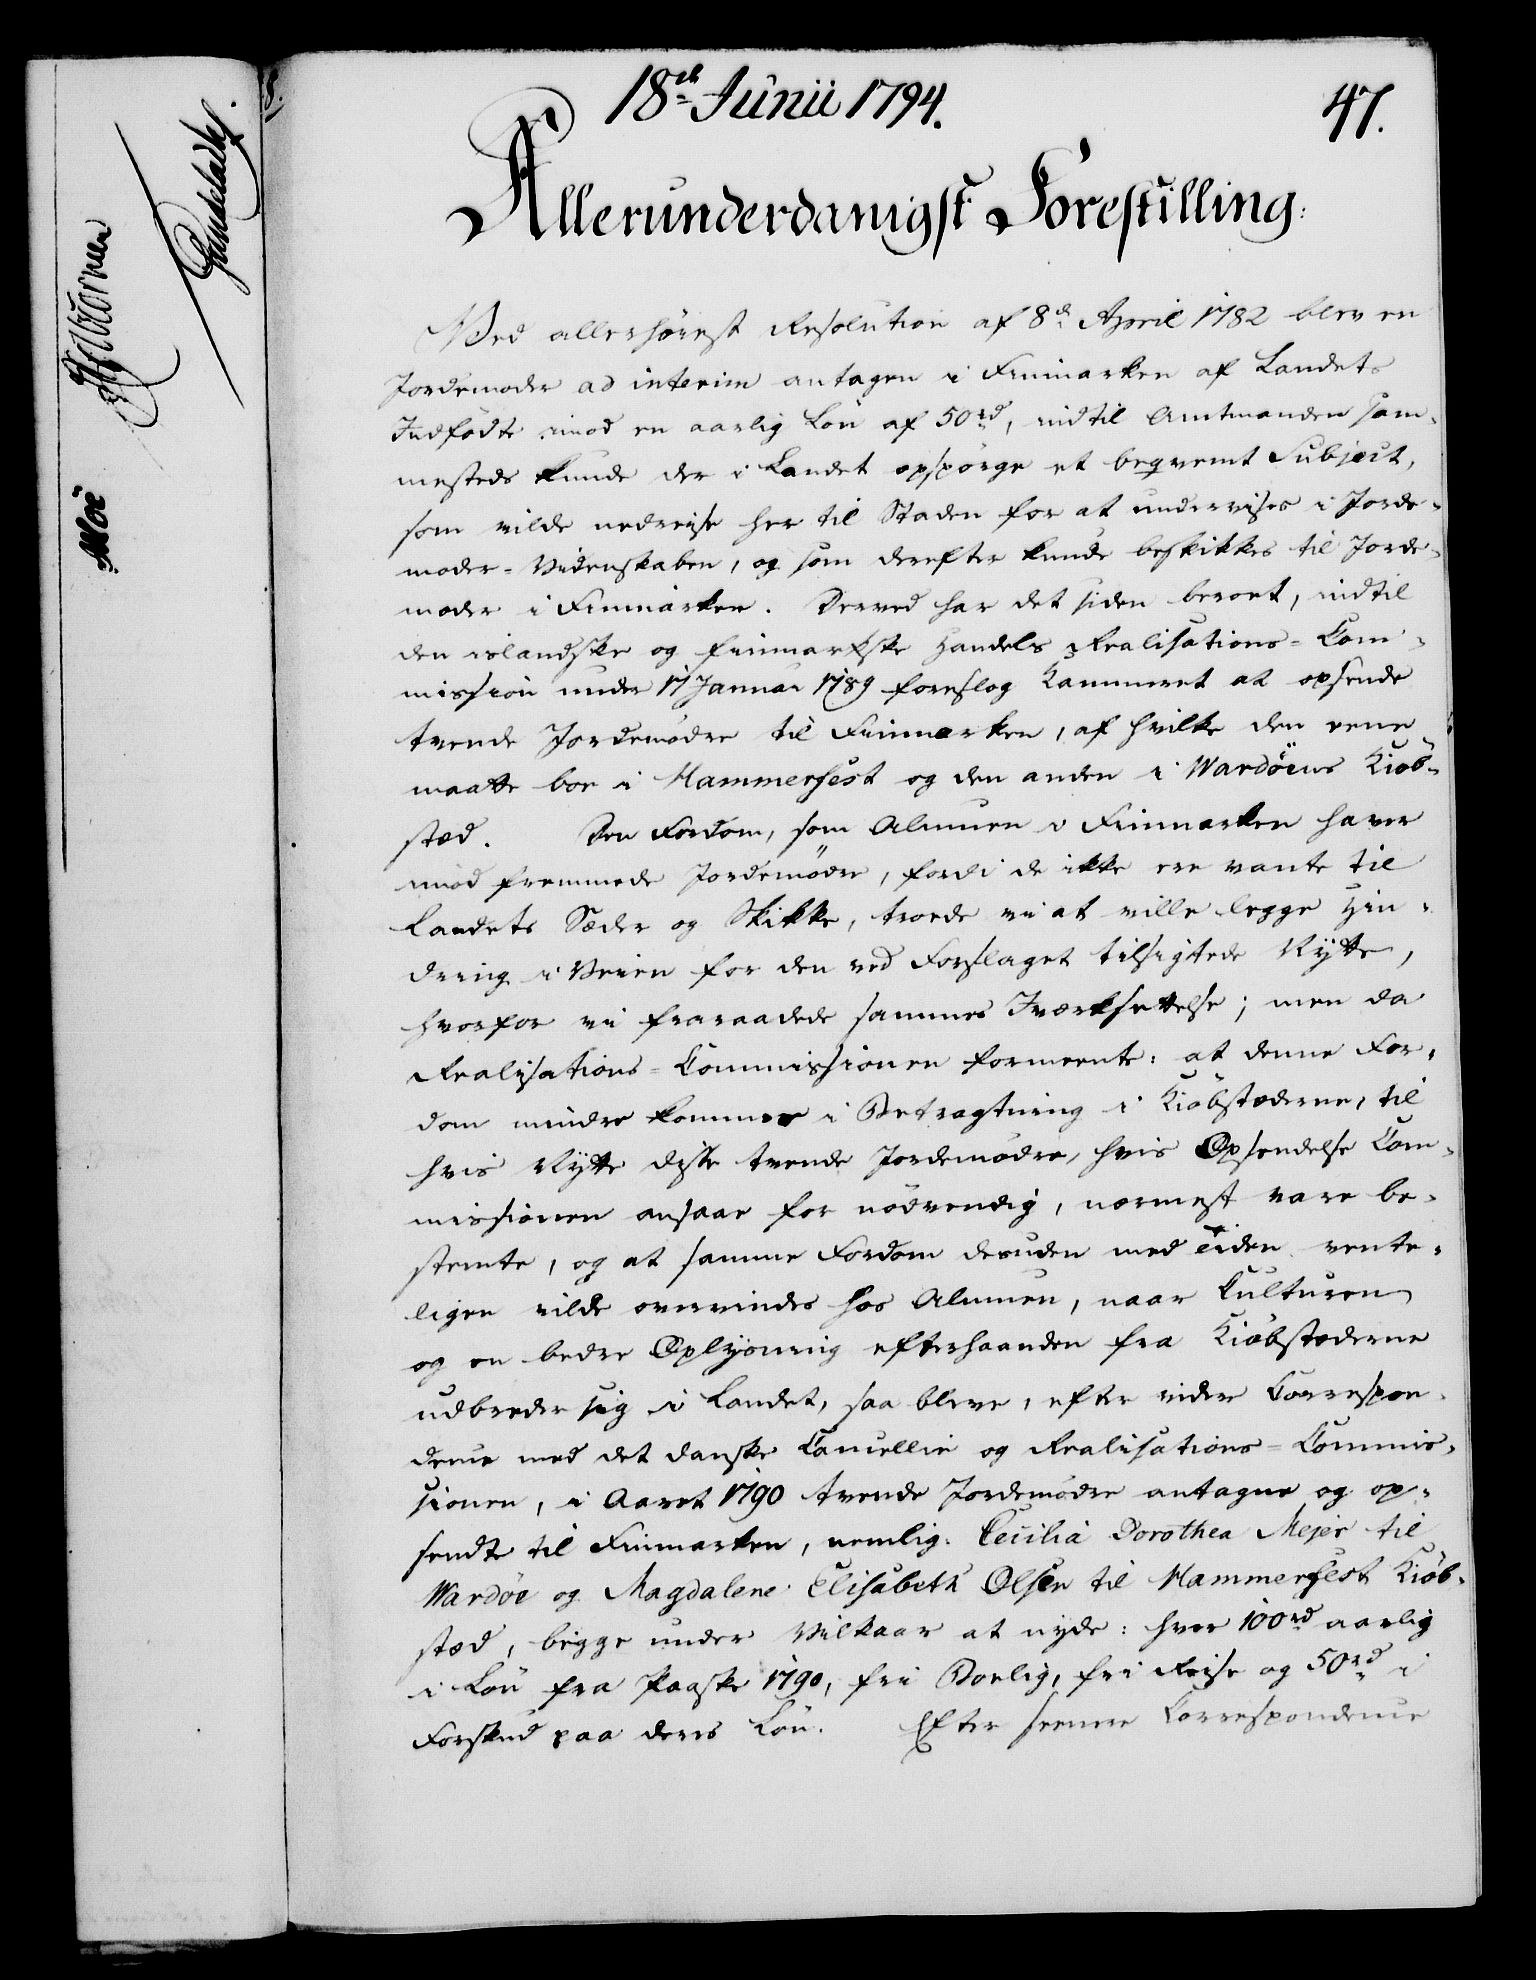 18de Junii 1794.
47.
Allerunderdanigst Forestilling:
Ved allerhöiest Resolution af 8de April 1782 blev en
Jordemoder ad interim antagen i Finmarken af Landets
Indfödte imod en aarlig Lön af 50 rd, indtil Amtmanden sam-
mesteds kunde der i Landet opspörge et beqvemt Subject,
som vilde nedreise her til Staden for at undervises i Jorde-
moder-Videnskaben, og som derefter kunde beskikkes til Jorde-
moder i Finmarken. Derved har det siden beroet, indtil
den islandske og finmarkske Handels Realisations-Com-
mission under 17 Januar 1789 foreslog Kammeret at opsende
tvende Jordemödre til Finmarken, af hvilke den eene
maatte boe i Hammerfest og den anden i Wardöens Kiöb-
stæd. Den Fordom, som Almuen i Finmarken haver
imod fremmede Jordemödre, fordi de ikke ere vante til
Landets Sæder og Skikke, troede vi at ville legge Hin-
dring i Veien for den ved Forslaget tilsigtede Nytte,
hvorfor vi fraraadede sammes Iværksettelse; men da
Realisations-Commissionen formeente: at denne For-
dom mindre kommer i Betragtning i Kiöbstæderne, til
hvis Nytte disse tvende Jordemödre, hvis Opsendelse Com-
missionen ansaae for nödvendig, nærmest vare be-
stemte, og at samme Fordom desuden med Tiden vente-
ligen vilde overvindes hos Almuen, naar Culturen
og en bedre Oplysning efterhaanden fra Kiöbstæderne
udbreder sig i Landet, saa bleve, efter videre Correspon-
dence med det danske Cancellie og Realisations-Commis-
sionen, i Aaret 1790 tvende Jordemödre antagne og op-
sendte til Finmarken, nemlig: Cecilia Dorothea Mejer til
Wardöe og Magdalene Elisabeth Olsen til Hammerfest Kiöb-
stæd, begge under Vilkaar at nyde: hver 100 rd aarlig
i Lön fra Paaske 1790, fri Boelig, fri Reise og 50 rd i
Forskud paa deres Lön. Efter seenere Correspondence
Moe